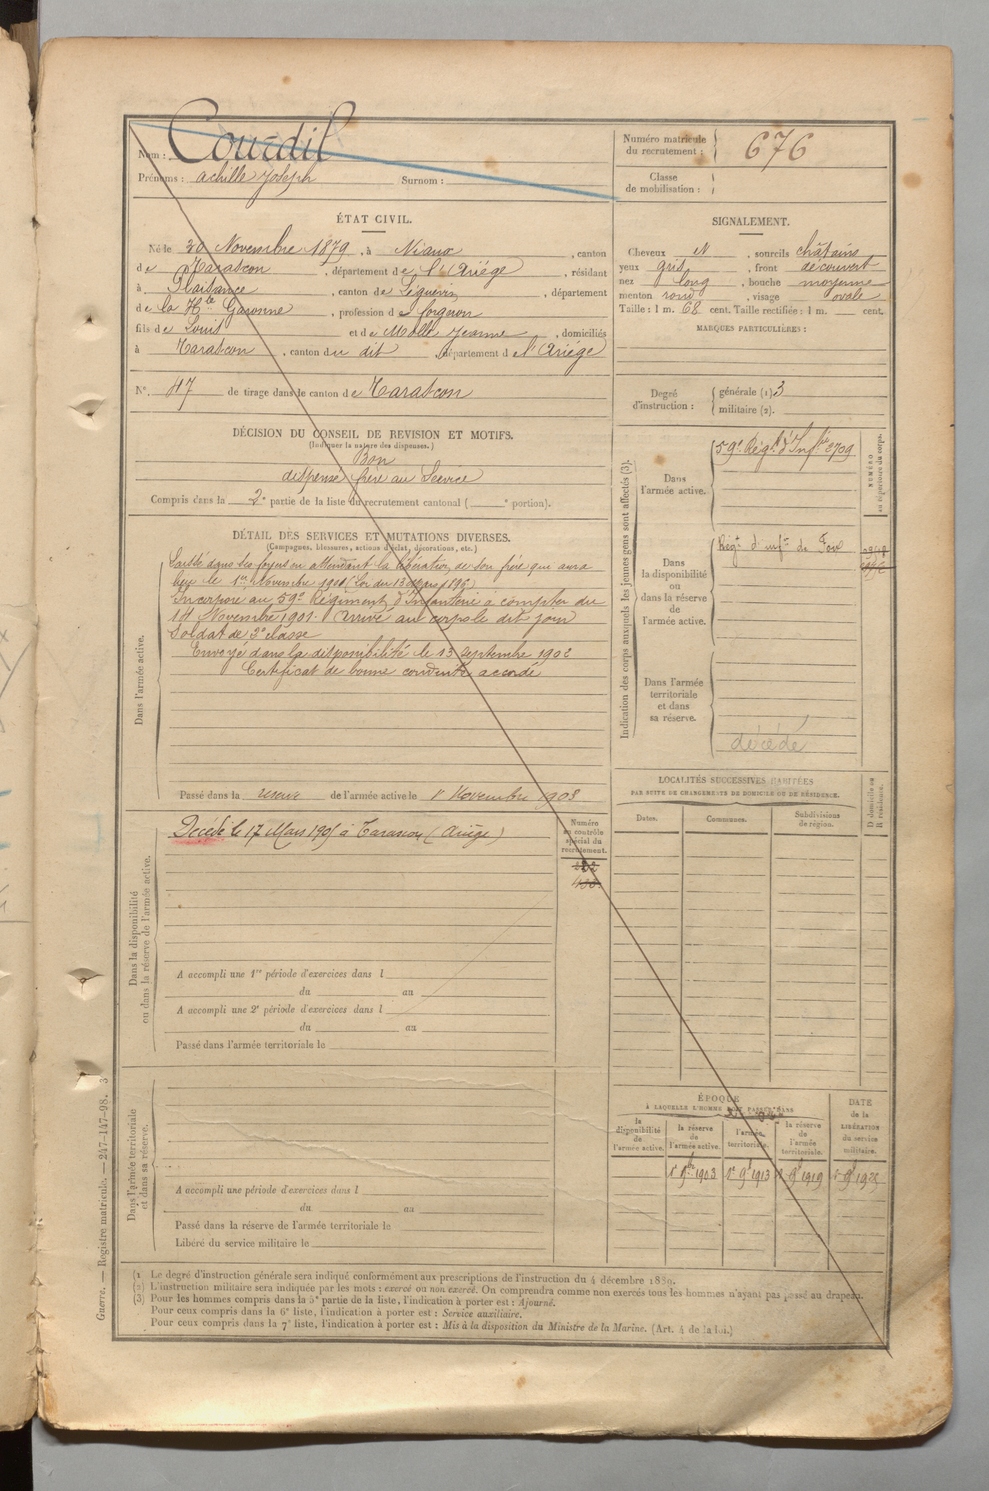 Nom : Courdil
Prénoms : achille Joseph Surnom :
Numéro matricule du recrutement : 676
Classe de mobilisation :
ÉTAT CIVIL.
Né le 20 Novembre 1879, à Niaux, canton
de Tarascon, département de l'Ariège, résidant
à Plaisance, canton de Léguevin, département
de la Hte Garonne, profession d
fils de Louis et de Jeanne, domiciliés
à Tarascon, canton du dit, département de l'Ariège
N° 47 de tirage dans le canton de Tarascon
DÉCISION DU CONSEIL DE REVISION ET MOTIFS.
(Indiquer la nature des dispenses.)
Bon
dispensé frère au Service
Compris dans la 2e partie de la liste du recrutement cantonal ( e portion).
DÉTAIL DES SERVICES ET MUTATIONS DIVERSES.
(Campagnes, blessures, actions d'éclat, décorations, etc.)
Dans l'armée active.
Laissé dans ses foyers en attendant la libération de son frère qui aura
lieu le 1er Novembre 1901 (Loi du
Incorporé au 59e Régiment d'Infanterie à compter du
14 Novembre 1901. Arrivé au corps le dit jour
Soldat de 2e classe
Envoyé dans la disponibilité le 13 septembre 1902
Certificat de bonne conduite accordé
Passé dans la réserve de l'armée active le 1r Novembre 1903
Dans la disponibilité ou dans la réserve de l'armée active.
Décédé le 17 Mars 1905 à Tarascon (Ariège)
Numéro au contrôle spécial du recrutement.
A accompli une 1re période d'exercices dans l
du au
A accompli une 2e période d'exercices dans l
du au
Passé dans l'armée territoriale le
Dans l'armée territoriale et dans sa réserve.
A accompli une période d'exercices dans l
du au
Passé dans la réserve de l'armée territoriale le
Libéré du service militaire le
SIGNALEMENT.
Cheveux et, sourcils châtains
yeux gris, front découvert
nez long, bouche moyenne
menton rond, visage ovale
Taille : 1 m. 68 cent. Taille rectifiée : 1 m. cent.
MARQUES PARTICULIÈRES :
Degré d'instruction : générale (1) 3
militaire (2).
Indication des corps auxquels les jeunes gens sont affectés (3).
NUMÉRO au répertoire du corps.
Dans l'armée active.
59e Régt d'Infrie 2709
Dans la disponibilité ou dans la réserve de l'armée active.
Régt d'infie de Foix
Dans l'armée territoriale et dans sa réserve.
décédé
LOCALITÉS SUCCESSIVES HABITÉES
PAR SUITE DE CHANGEMENTS DE DOMICILE OU DE RÉSIDENCE.
Dates. Communes. Subdivisions de région. D domicile ou R résidence.
ÉPOQUE
À LAQUELLE L'HOMME DOIT PASSER DANS
la disponibilité de l'armée active.
la réserve de l'armée active.
l'armée territoriale.
la réserve de l'armée territoriale.
DATE de la LIBÉRATION du service militaire.
1r 9bre 1903 1r 9bre 1913 1r 9bre 1919
Guerre. — Registre matricule. — 247-147-98. 3
(1 Le degré d'instruction générale sera indiqué conformément aux prescriptions de l'instruction du 4 décembre 1889.
(2) L'instruction militaire sera indiquée par les mots : exercé ou non exercé. On comprendra comme non exercés tous les hommes n'ayant pas passé au drapeau.
(3) Pour les hommes compris dans la 5e partie de la liste, l'indication à porter est : Ajourné.
Pour ceux compris dans la 6e liste, l'indication à porter est : Service auxiliaire.
Pour ceux compris dans la 7e liste, l'indication à porter est : Mis à la disposition du Ministre de la Marine. (Art. 4 de la loi.)